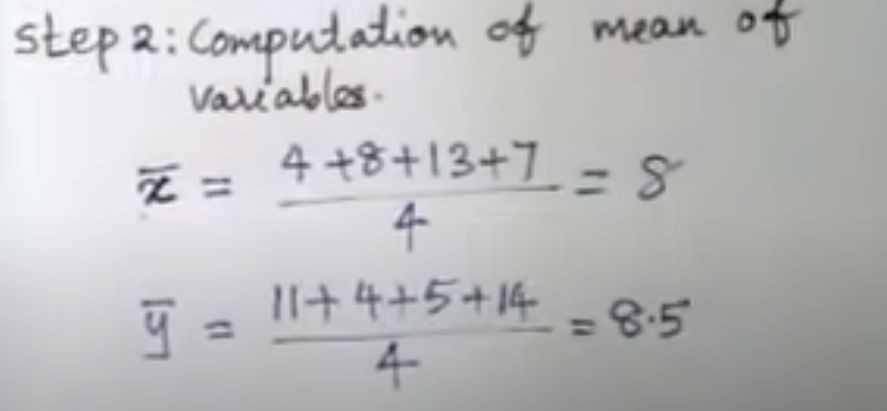 Step 2: Computation of mean of
variables.
x̄ = 4+8+13+7 / 4 = 8
ȳ = 11+4+5+14 / 4 = 8.5